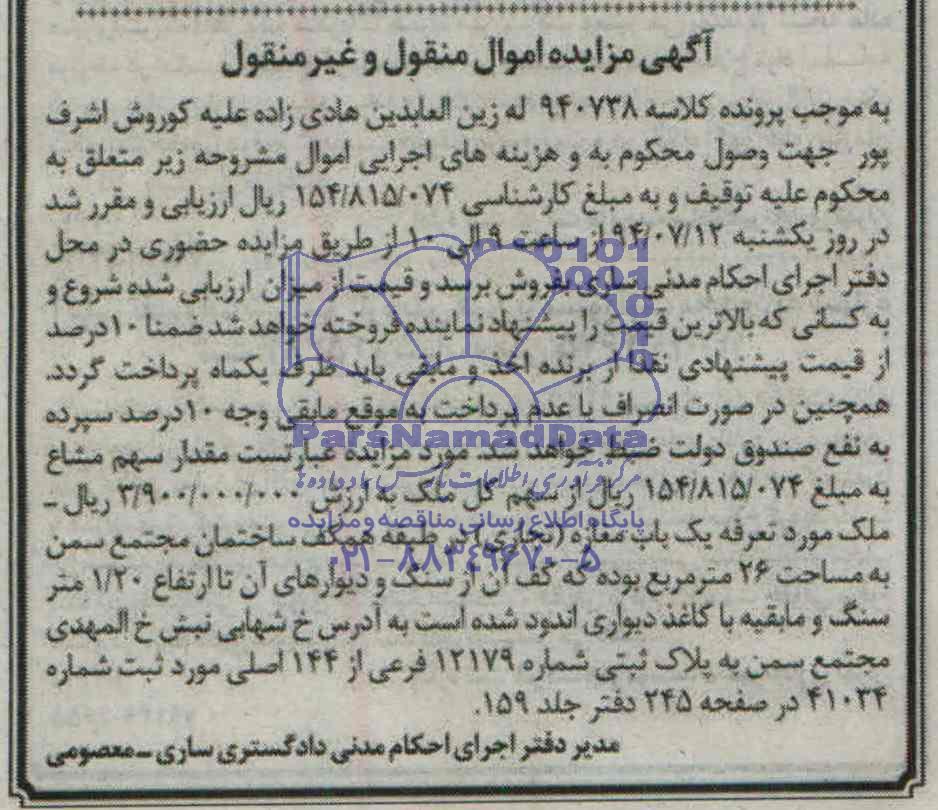 آگهی مزایده اموال منقول و غیر منقول
به موجب پرونده کلاسه ۹۴۰۷۳۸ له زین العابدین هادی زاده علیه کوروش اشرف
پور جهت وصول محکوم به و هزینه های اجرایی اموال مشروحه زیر متعلق به
محکوم علیه توقیف و به مبلغ کارشناسی ۱۵۴/۸۱۵/۰۷۴ ریال ارزیابی و مقرر شد
در روز یکشنبه ۹۴/۰۷/۱۲ از ساعت ۹ الی ۱۰ از طریق مزایده حضوری در محل
دفتر اجرای احکام مدنی ساری بفروش برسد و قیمت از میزان ارزیابی شده شروع و
به کسانی که بالاترین قیمت را پیشنهاد نماینده فروخته خواهد شد ضمنا ۱۰درصد
از قیمت پیشنهادی نقدا از برنده اخذ و مابقی باید ظرف یکماه پرداخت گردد.
همچنین در صورت انصراف یا عدم پرداخت به موقع مابقی وجه ۱۰درصد سپرده
ParsNamadData
به نفع صندوق دولت ضبط خواهد شد. مورد مزایده عبارتست مقدار سهم مشاع
مرکز فرآوری اطلاعات پارس نماد داده ها
به مبلغ ۱۵۴/۸۱۵/۰۷۴ ریال از سهم کل ملک به ارزش ۳/۹۰۰/۰۰۰/۰۰۰ ریال_
پایگاه اطلاع رسانی مناقصه و مزایده
ملک مورد تعرفه یک باب مغازه (تجاری) در طبقه همکف ساختمان مجتمع سمن
۰۲۱-۸۸۳۴۹۶۷۰-۵
به مساحت ۲۶ مترمربع بوده که کف آن از سنگ و دیوارهای آن تا ارتفاع ۱/۲۰ متر
سنگ و مابقیه با کاغذ دیواری اندود شده است به آدرس خ شهابی نبش خ المهدی
مجتمع سمن به پلاک ثبتی شماره ۱۲۱۷۹ فرعی از ۱۴۴ اصلی مورد ثبت شماره
۴۱۰۳۴ در صفحه ۲۴۵ دفتر جلد ۱۵۹.
مدیر دفتر اجرای احکام مدنی دادگستری ساری _ معصومی